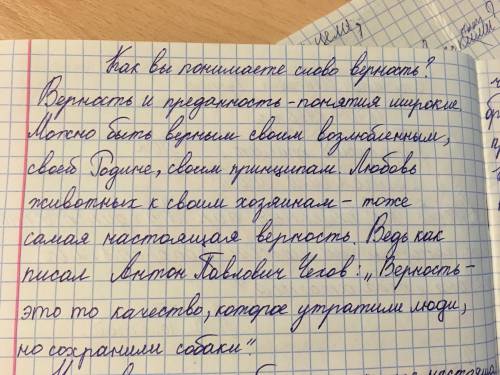 Как вы понимаете слово верность?
Верность и преданность - понятия широкие
Можно быть верным своим возлюбленным,
своей Родине, своим принципам. Любовь
животных к своим хозяинам - тоже
самая настоящая верность. Ведь как
писал Антон Павлович Чехов: „Верность -
это то качество, которое утратили люди,
но сохранили собаки".